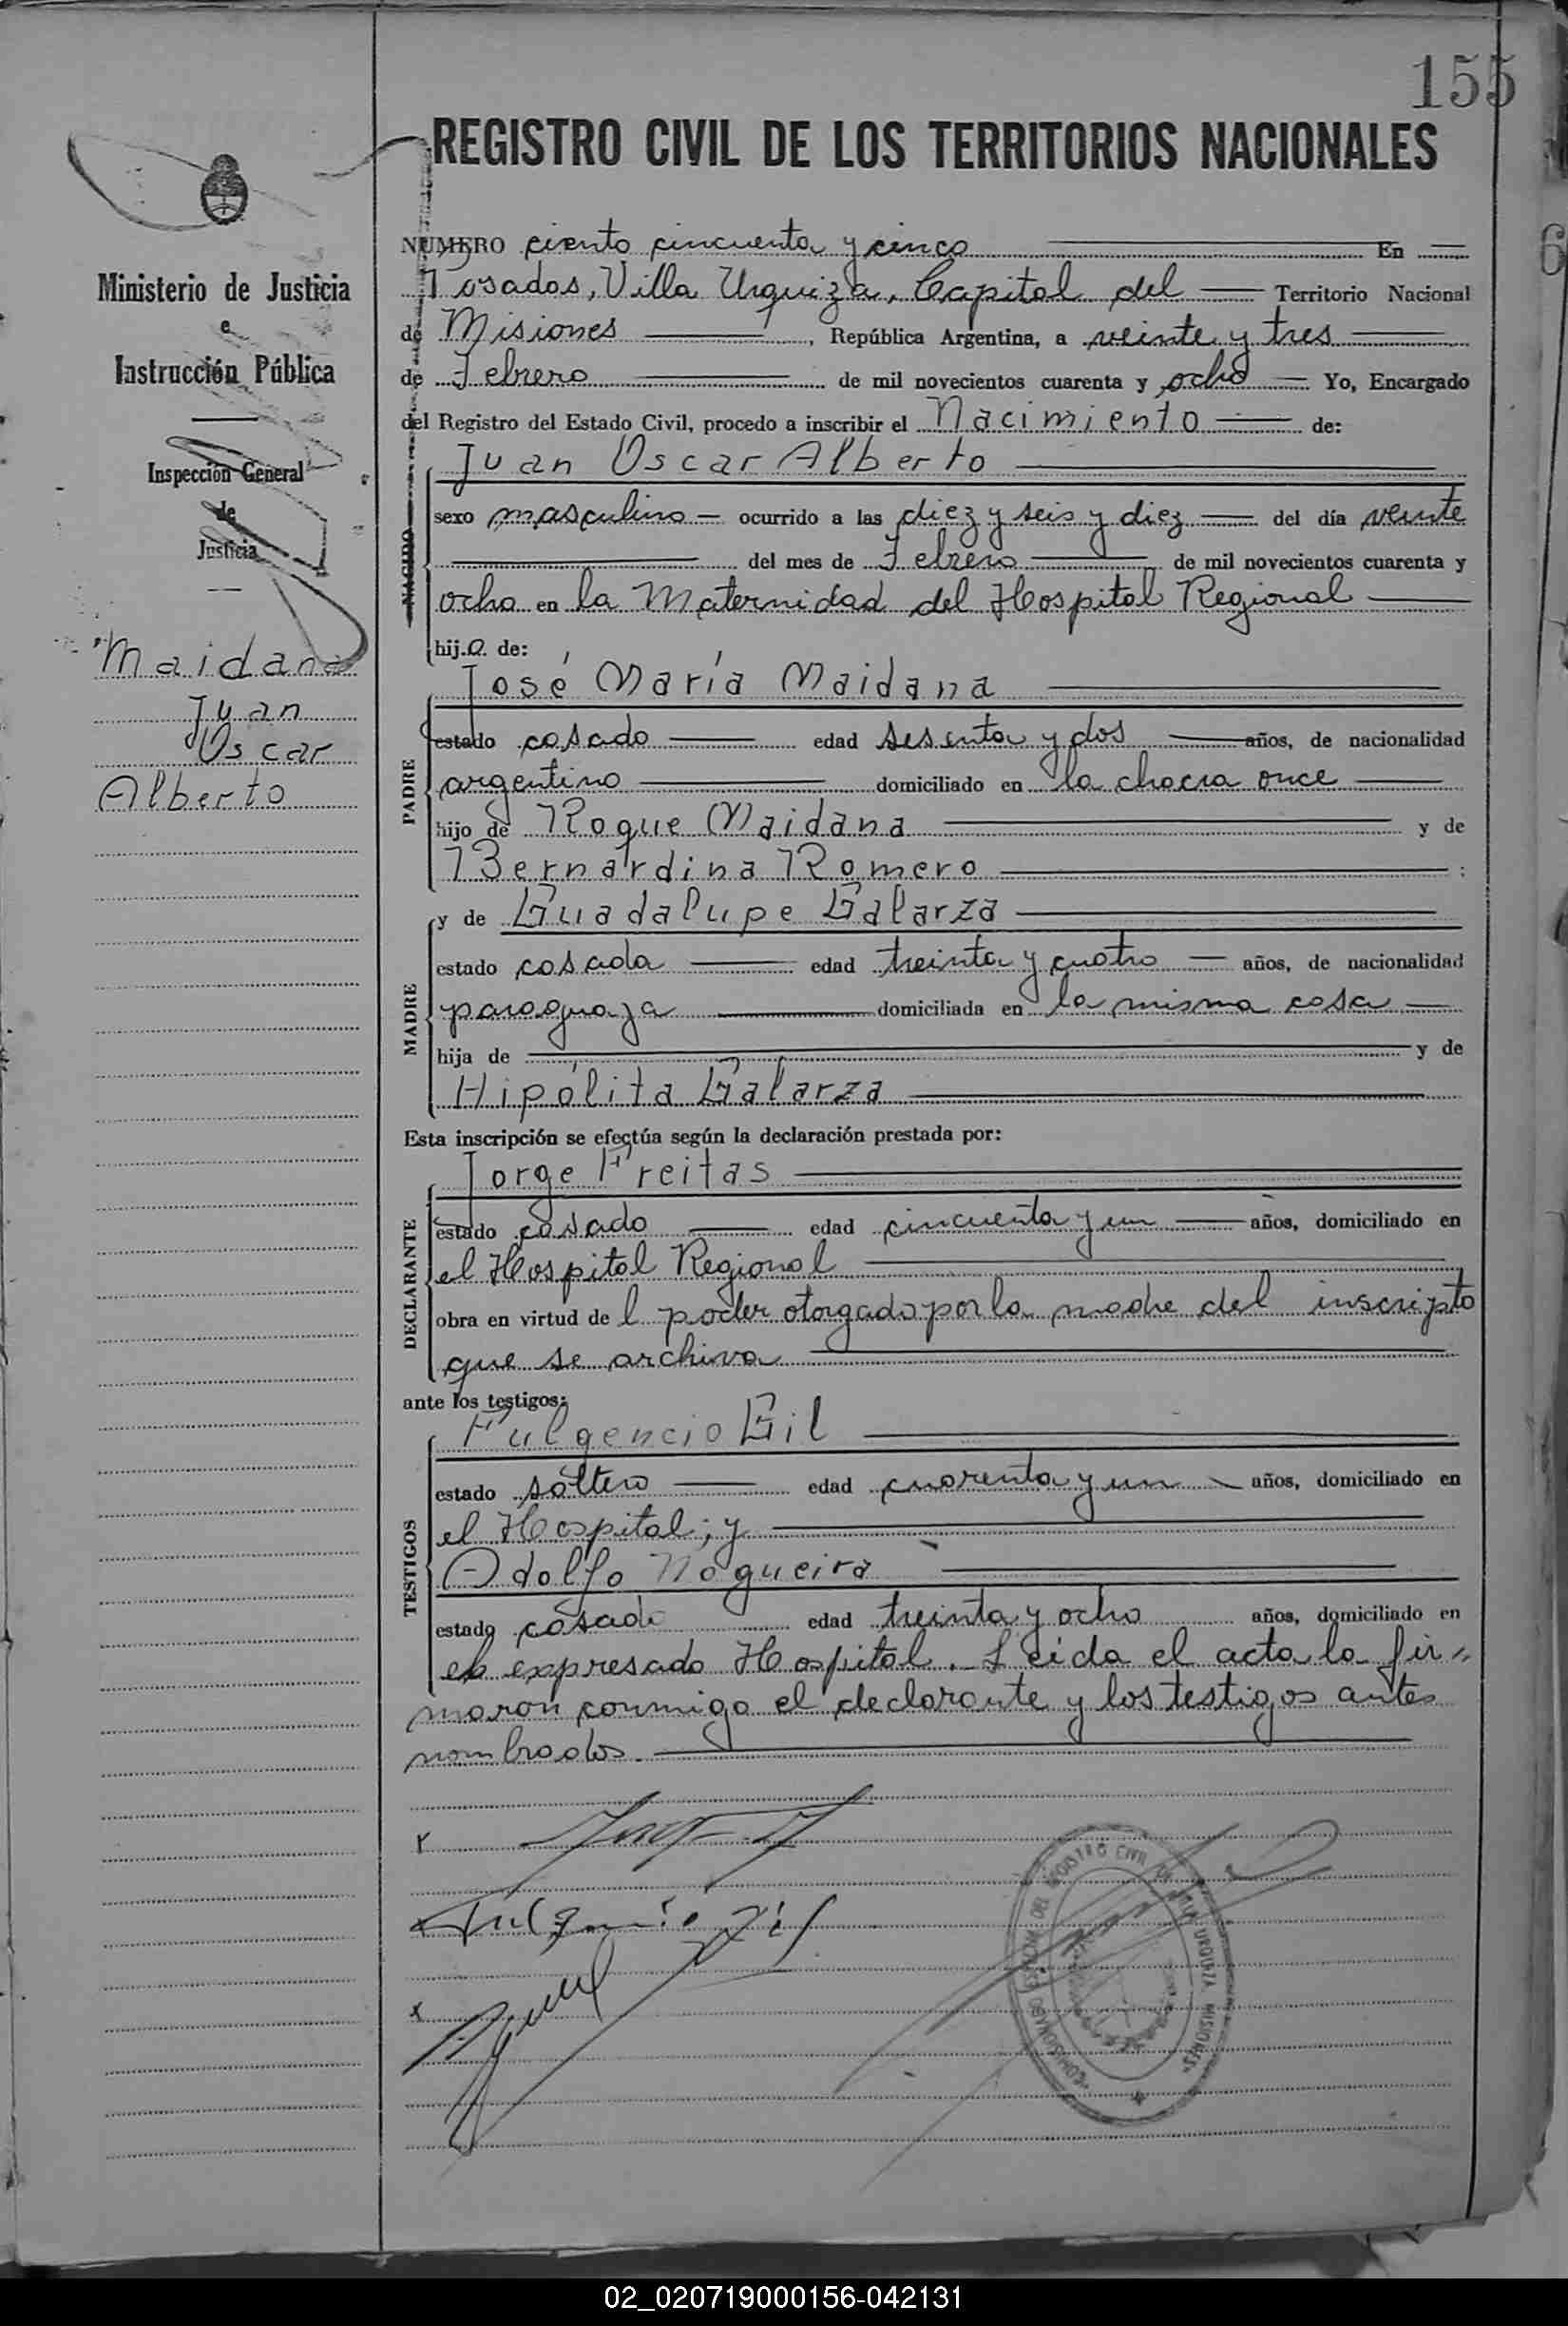 155
REGISTRO CIVIL DE LOS TERRITORIOS NACIONALES
Ministerio de Justicia
e
Instrucción Pública
Inspección General
de
Justicia
Maidana
Juan
Oscar
Alberto
NUMERO ciento cincuenta y cinco En
Posadas, Villa Urquiza, Capital del Territorio Nacional
de Misiones, República Argentina, a veinte y tres
de Febrero de mil novecientos cuarenta y ocho Yo, Encargado
del Registro del Estado Civil, procedo a inscribir el Nacimiento de:
NACIDO
Juan Oscar Alberto
sexo masculino ocurrido a las diez y seis y diez del día veinte
del mes de Febrero de mil novecientos cuarenta y
ocho en la Maternidad del Hospital Regional
hijo de:
PADRE
José María Maidana
estado casado edad sesenta y dos años, de nacionalidad
argentino domiciliado en la chacra once
hijo de Roque Maidana y de
Bernardina Romero ;
MADRE
y de Guadalupe Galarza
estado casada edad treinta y cuatro años, de nacionalidad
paraguaya domiciliada en la misma casa
hija de y de
Hipólita Galarza
Esta inscripción se efectúa según la declaración prestada por:
DECLARANTE
Jorge Freitas
estado casado edad cincuenta y un años, domiciliado en
el Hospital Regional
obra en virtud del poder otorgado por la madre del inscripto
que se archiva
ante los testigos:
TESTIGOS
Fulgencio Gil
estado soltero edad cuarenta y un años, domiciliado en
el Hospital; y
Adolfo Nogueira
estado casado edad treinta y ocho años, domiciliado en
el expresado Hospital. Leida el acta la fir=
maron conmigo el declarante y los testigos antes
nombrados.
Fulgencio Gil
02_020719000156-042131